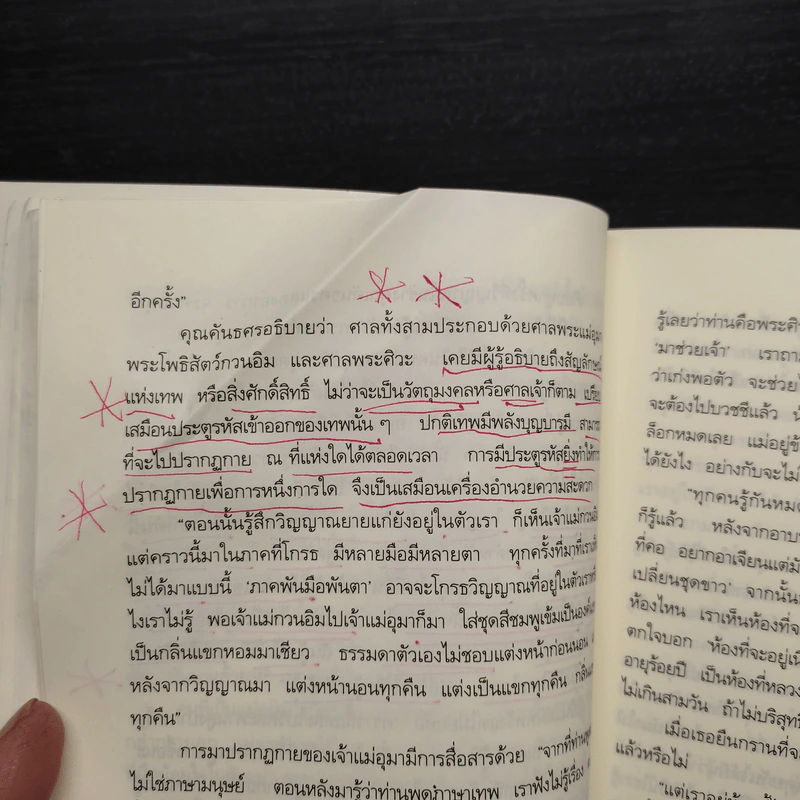 อีกครั้ง”
คุณคันธศรอธิบายว่า ศาลทั้งสามประกอบด้วยศาลพระแม่อุมา
พระโพธิสัตว์กวนอิม และศาลพระศิวะ เคยมีผู้รู้อธิบายถึงสัญลักษณ์
แห่งเทพ หรือสิ่งศักดิ์สิทธิ์ ไม่ว่าจะเป็นวัตถุมงคลหรือศาลเจ้าก็ตาม เปรียบ
เสมือนประตูรหัสเข้าออกของเทพนั้น ๆ ปกติเทพมีพลังบุญบารมี สามารถ
ที่จะไปปรากฏกาย ณ ที่แห่งใดได้ตลอดเวลา การมีประตูรหัสยิ่งทำให้การ
ปรากฏกายเพื่อการหนึ่งการใด จึงเป็นเสมือนเครื่องอำนวยความสะดวก
“ตอนนั้นรู้สึกวิญญาณยายแก่ยังอยู่ในตัวเรา ก็เห็นเจ้าแม่กวนอิม
แต่คราวนี้มาในภาคที่โกรธ มีหลายมือมีหลายตา ทุกครั้งที่มาที่เราเห็น
ไม่ได้มาแบบนี้ ‘ภาคพันมือพันตา’ อาจจะโกรธวิญญาณที่อยู่ในตัวเรา
ไงเราไม่รู้ พอเจ้าแม่กวนอิมไปเจ้าแม่อุมาก็มา ใส่ชุดสีชมพูเข้มเป็นองค์
เป็นกลิ่นแขกหอมมาเชียว ธรรมดาตัวเองไม่ชอบแต่งหน้าก่อนนอน
หลังจากวิญญาณมา แต่งหน้านอนทุกคืน แต่งเป็นแขกทุกคืน กลิ่น
ทุกคืน”
การมาปรากฏกายของเจ้าแม่อุมามีการสื่อสารด้วย “จากที่ท่าน
ไม่ใช่ภาษามนุษย์ ตอนหลังมารู้ว่าท่านพูดภาษาเทพ เราฟังไม่รู้เรื่อง
รู้เลยว่าท่านคือพระศิ
‘มาช่วยเจ้า’ เราถาม
ว่าเก่งพอตัว จะช่วย
จะต้องไปบวชชีแล้ว
ล็อกหมดเลย แม่อยู่
ได้ยังไง อย่างกับจะไม่
“ทุกคนรู้กันหมด
ก็รู้แล้ว หลังจากอาบ
ที่คอ อยากอาเจียนแต่
เปลี่ยนชุดขาว’ จากนั้น
ห้องไหน เราเห็นห้องที่
ตกใจบอก ‘ห้องที่จะอยู่
อายุร้อยปี เป็นห้องที่หลวง
ไม่เกินสามวัน ถ้าไม่บริสุทธิ์
เมื่อเธอยืนกรานที่จะ
แล้วหรือไม่